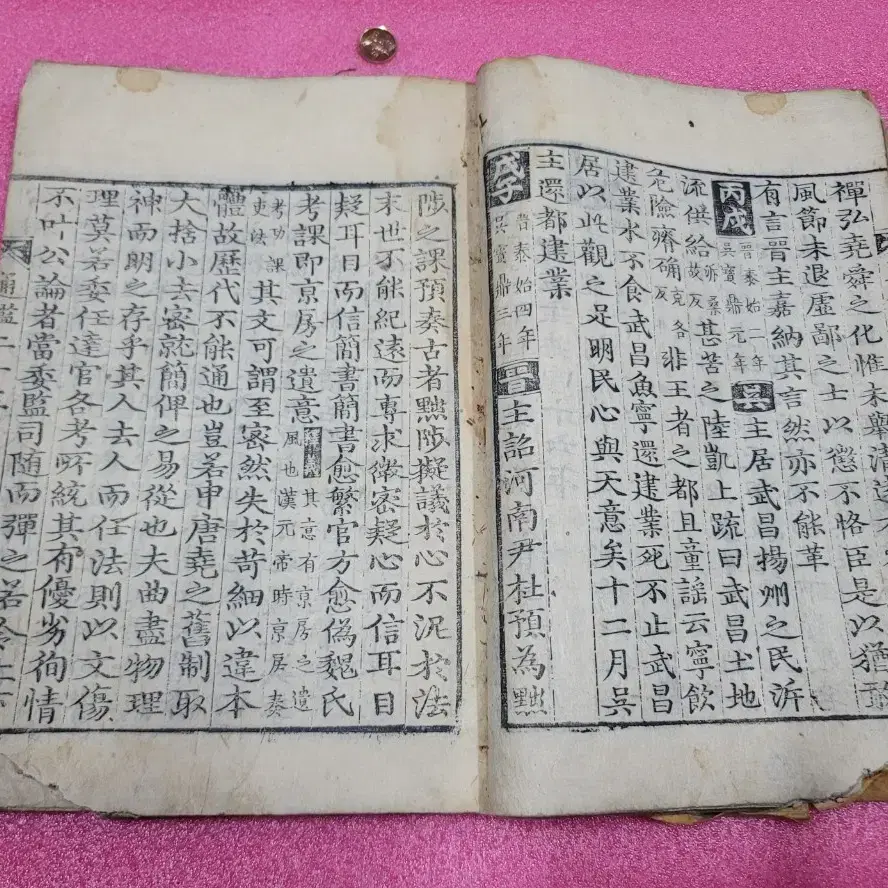 禪弘堯舜之化惟未舉淸遠
風節未退虛鄙之士以懲不恪臣是以猶
有言晉主嘉納其言然亦不能革
丙戌晉泰始二年吳寶鼎元年吳主居武昌揚州之民泝
流供給泝桑故反甚苦之陸凱上疏曰武昌土地
危險瘠确克各反非王者之都且童謠云寧飮
建業水不食武昌魚寧還建業死不止武昌
居以此觀之足明民心與天意矣十二月吳
主還都建業
戊子晉泰始四年吳寶鼎三年晉主詔河南尹杜預為黜
陟之課預奏古者黜陟擬議於心不泥於法
末世不能紀遠而專求微密疑心而信耳目
疑耳目而信簡書簡書愈繁官方愈偽魏氏
考課即京房之遺意釋義其意有京房之遺風也漢元帝時京房奏
考功課吏法其文可謂至密然失於苛細以違本
體故歷代不能通也豈若申唐堯之舊制取
大捨小去密就簡俾之易從也夫曲盡物理
神而明之存乎其人去人而任法則以文傷
理莫若委任達官各考所統其有優劣徇情
不叶公論者當委監司隨而彈之若令上下
通鑑二十